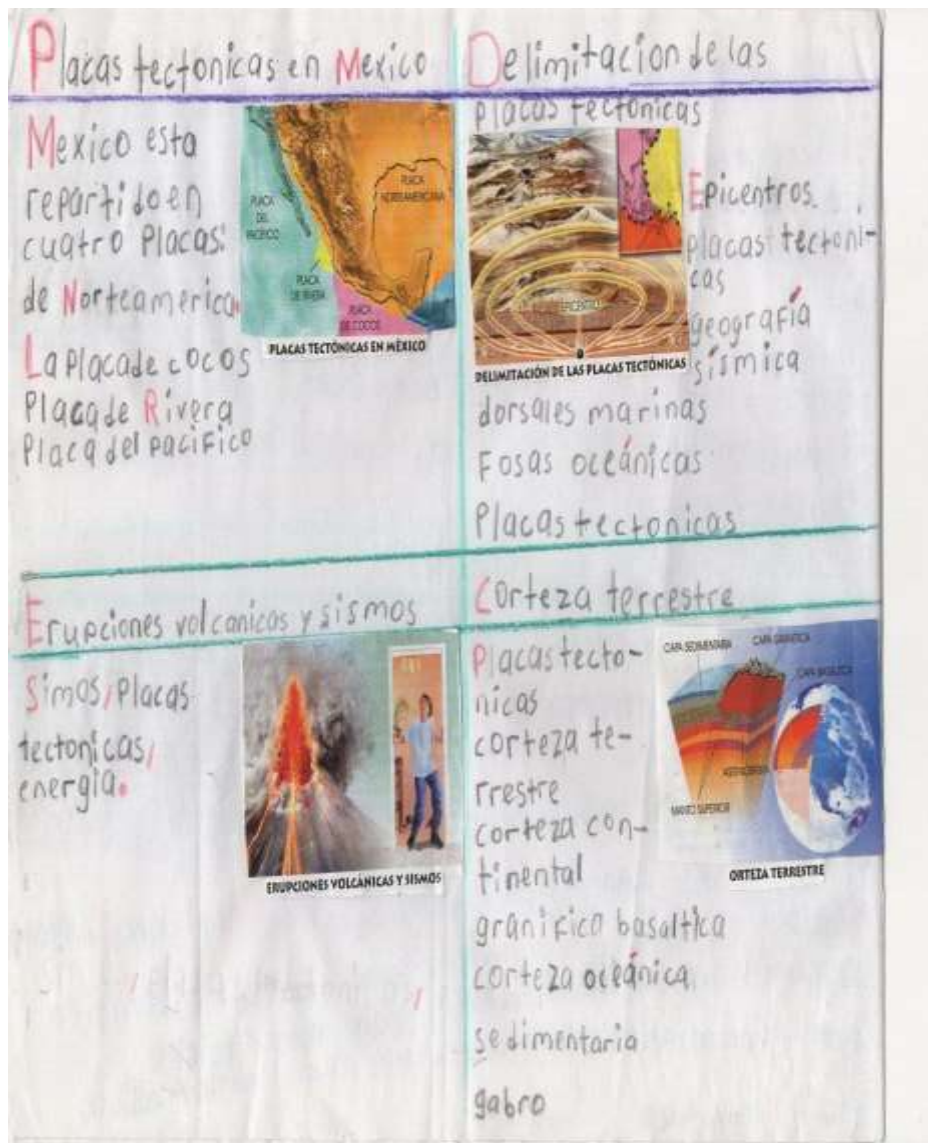 Placas tectonicas en Mexico
Mexico esta
repartido en
cuatro Placas:
de Norteamerica.
La Placa de cocos
Placa de Rivera
Placa del pacifico
PLACA DEL PACÍFICO
PLACA NORTEAMERICANA
PLACA DE RIVERA
PLACA DE COCOS
PLACAS TECTÓNICAS EN MÉXICO
Delimitacion de las
placas tectonicas
Epicentros.
placas tectoni-
cas
geografía
sísmica
dorsales marinas
Fosas oceánicas
Placas tectonicas
EPICENTRO
DELIMITACIÓN DE LAS PLACAS TECTÓNICAS
Erupciones volcanicas y sismos
Simos, Placas
tectonicas,
energia.
ERUPCIONES VOLCÁNICAS Y SISMOS
Corteza terrestre
Placas tecto-
nicas
corteza te-
rrestre
corteza con-
tinental
granifico basaltica
corteza oceánica
sedimentaria
gabro
CAPA SEDIMENTARIA
CAPA GRANÍTICA
CAPA BASÁLTICA
MANTO SUPERIOR
ORTEZA TERRESTRE